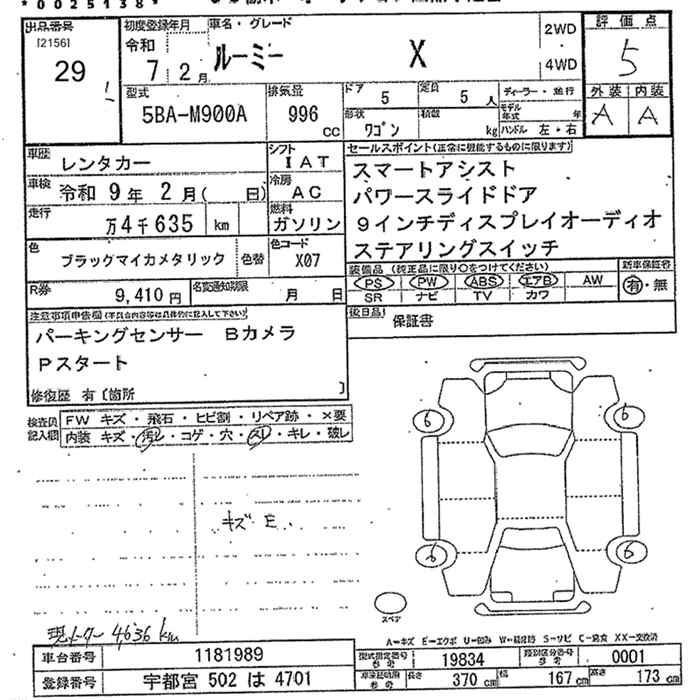 *0025138*
出品番号 [2156] 29
初度登録年月 令和 7 2月
車名・グレード ルーミー X
2WD
4WD
評価点 5
外装 内装
A A
型式 5BA-M900A
排気量 996 cc
ドア 5
定員 5 人
形状 ワゴン
積数 kg
ディーラー・並行
モデル年式 年
ハンドル 左・右
車歴 レンタカー
シフト IAT
車検 令和 9年 2月( 日)
冷房 AC
走行 万4千635 km
燃料 ガソリン
色 ブラックマイカメタリック 色替
色コード X07
R券 9,410円
名変通知期限 月 日
セールスポイント(正常に機能するものに限ります)
スマートアシスト
パワースライドドア
9インチディスプレイオーディオ
ステアリングスイッチ
装備品(純正品に限り○をつけてください)
PS PW ABS エアB AW
SR ナビ TV カワ
新車保証書
有・無
後日品 保証書
注意事項申告欄(不具合内容等は具体的に記入して下さい)
パーキングセンサー Bカメラ
Pスタート
修復歴 有〔箇所 〕
検査員記入欄
FW キズ・飛石・ヒビ割・リペア跡・×要
内装 キズ・汚レ・コゲ・穴・スレ・キレ・破レ
キズ E
6 6
6 6
スペア
現メーター 4636 km
A-キズ E-エクボ U-凹み W-補修跡 S-サビ C-腐食 XX-交換済
車台番号 1181989
登録番号 宇都宮 502 は 4701
型式指定番号 参考 19834
類別区分番号 参考 0001
車両諸元 参考 長さ 370 cm 幅 167 cm 高さ 173 cm